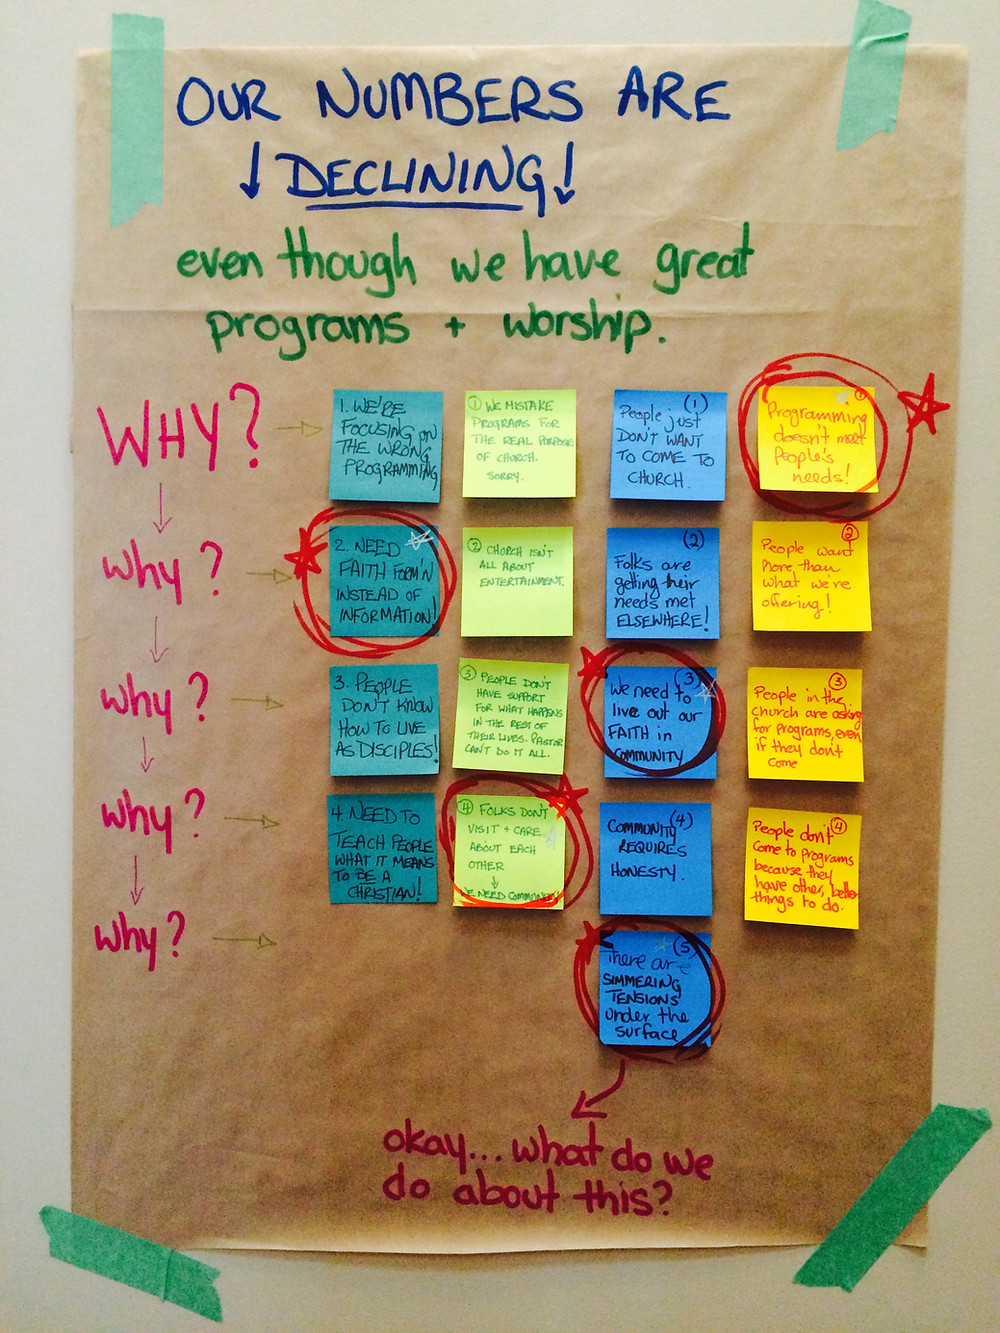 OUR NUMBERS ARE
↓ DECLINING! ↓
even though we have great
programs + worship.
WHY?
1. WE'RE
FOCUSING ON
THE WRONG
PROGRAMMING
① WE MISTAKE
PROGRAMS FOR
THE REAL PURPOSE
OF CHURCH.
SORRY.
(1)
People just
DON'T WANT
TO COME TO
CHURCH.
①
Programming
doesn't meet
People's
needs!
why?
2. NEED
FAITH FORM'N
INSTEAD OF
INFORMATION!
② CHURCH ISN'T
ALL ABOUT
ENTERTAINMENT.
(2)
Folks are
getting their
needs met
ELSEWHERE!
②
People want
More than
what we're
offering!
why?
3. PEOPLE
DON'T KNOW
HOW TO LIVE
AS DISCIPLES!
③ PEOPLE DON'T
HAVE SUPPORT
FOR WHAT HAPPENS
IN THE REST OF
THEIR LIVES. PASTOR
CAN'T DO IT ALL.
(3)
We need to
live out our
FAITH in
COMMUNITY
③
People in the
church are asking
for programs, even
if they don't
come
why?
4. NEED TO
TEACH PEOPLE
WHAT IT MEANS
TO BE A
CHRISTIAN!
④ FOLKS DON'T
VISIT + CARE
ABOUT EACH
OTHER
↓
WE NEED COMMUNITY!
(4)
COMMUNITY
REQUIRES
HONESTY.
④
People don't
Come to programs
because they
have other, better
things to do.
why?
(5)
There are
SIMMERING
TENSIONS
under the
surface
okay... what do we
do about this?